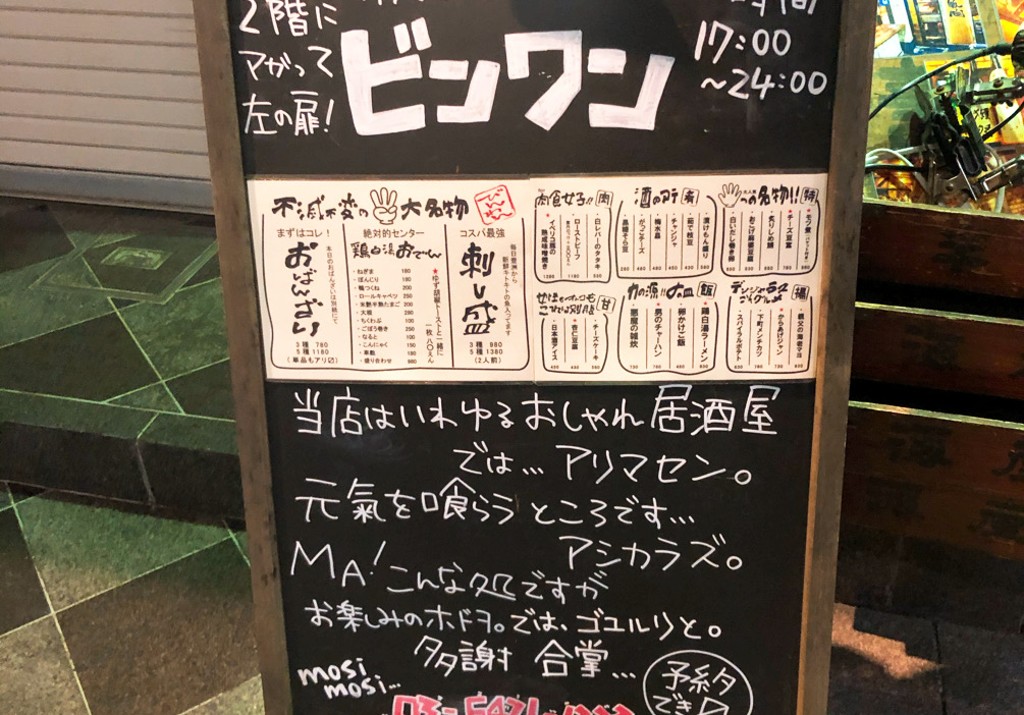 2階に
アがって
左の扉!
ビンワン
17:00
～24:00
不滅不変の3大名物
まずはコレ!
おばんざい
3種 780
5種 1180
(単品もアリ〼)
絶対的センター
鶏白湯おでん
・ねぎま 180
・ぼんじり 180
・鶏つくね 200
・ロールキャベツ 250
・半熟たまご 200
・大根 200
・ちくわぶ 100
・ごぼう巻き 250
・なると 100
・こんにゃく 150
・盛り合わせ 980
★ゆず胡椒トーストと一緒に
一枚八〇えん
コスパ最強
刺し盛
毎日豊洲から
新鮮キトキトの魚入ってます
3種 980
5種 1380
(2人前)
肉食女子!! 肉
・白レバーのタタキ
・ローストビーフ
★イベリコ豚の
熟成味噌焼き
酒のアテ
・漬けもん盛り
・茹で枝豆
・チャンジャ
・梅水晶
・がっこチーズ
・黒鯛そら豆
の名物!!
★モツ煮
・チーズ豆富
・炙りしめ鯖
・おこげ麻婆豆腐
・白いだし巻き
甘
・チーズケーキ
・杏仁豆腐
・日本酒アイス
力の源!! 飯
・鶏白湯ラーメン
・卵かけご飯
★男のチャーハン
・悪魔の雑炊
揚
・親父の海老マヨ
★からあげジャン
・下町メンチカツ
・スパイシーポテト
当店はいわゆるおしゃれ居酒屋
では…アリマセン。
元氣を喰らうところです…
アシカラズ。
MA!こんな処ですが
お楽しみのホドヲ。では、ゴユルリと。
多謝 合掌…
mosi
mosi…
予約タ
でき〼